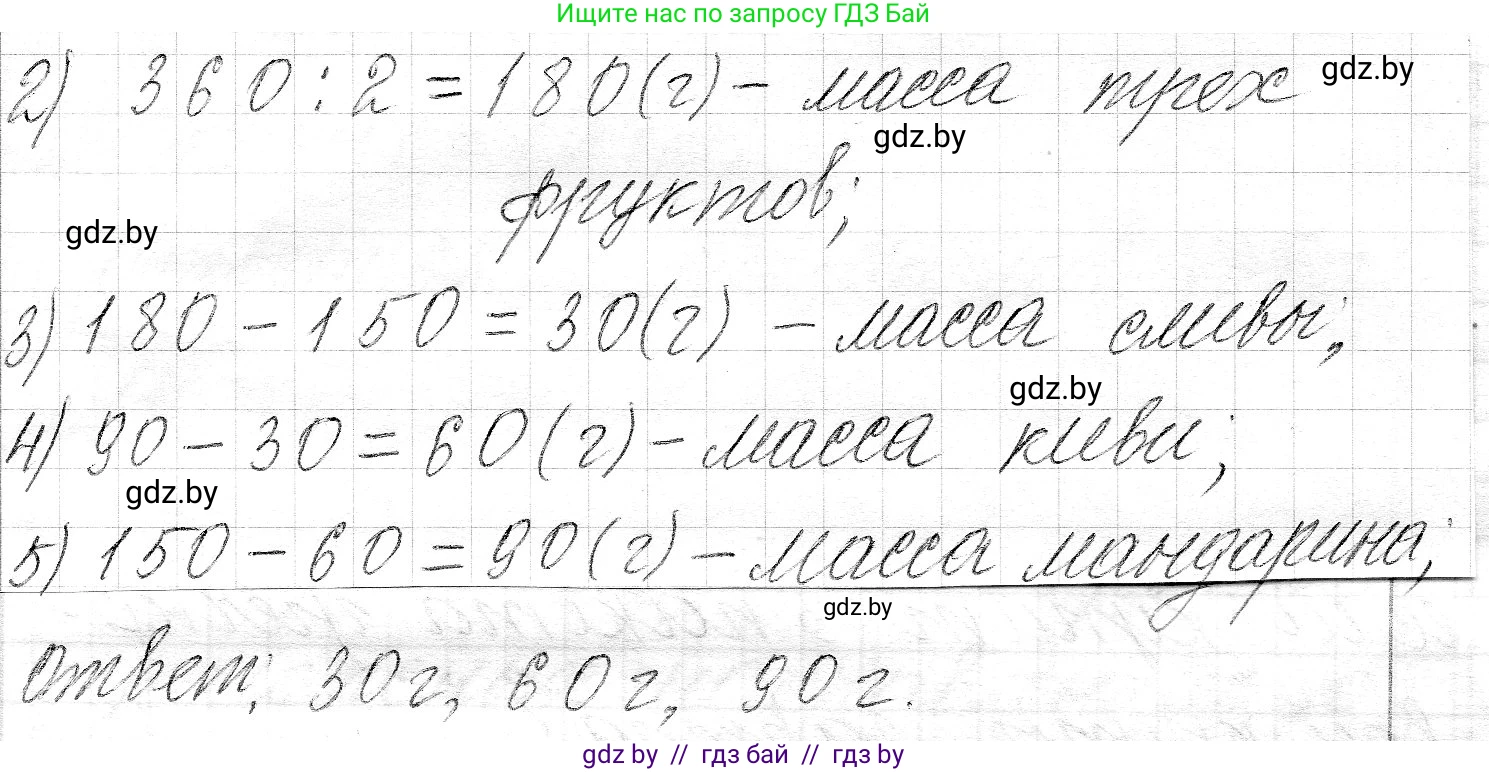 Ищите нас по запросу ГДЗ Бай
2) 360 : 2 = 180 (г) – масса трех
gdz.by
gdz.by
фруктов;
gdz.by
3) 180 – 150 = 30 (г) – масса сливы;
gdz.by
4) 90 – 30 = 60 (г) – масса киви;
gdz.by
5) 150 – 60 = 90 (г) – масса мандарина;
gdz.by
Ответ: 30 г, 60 г, 90 г.
gdz by // гдз бай // гдз by